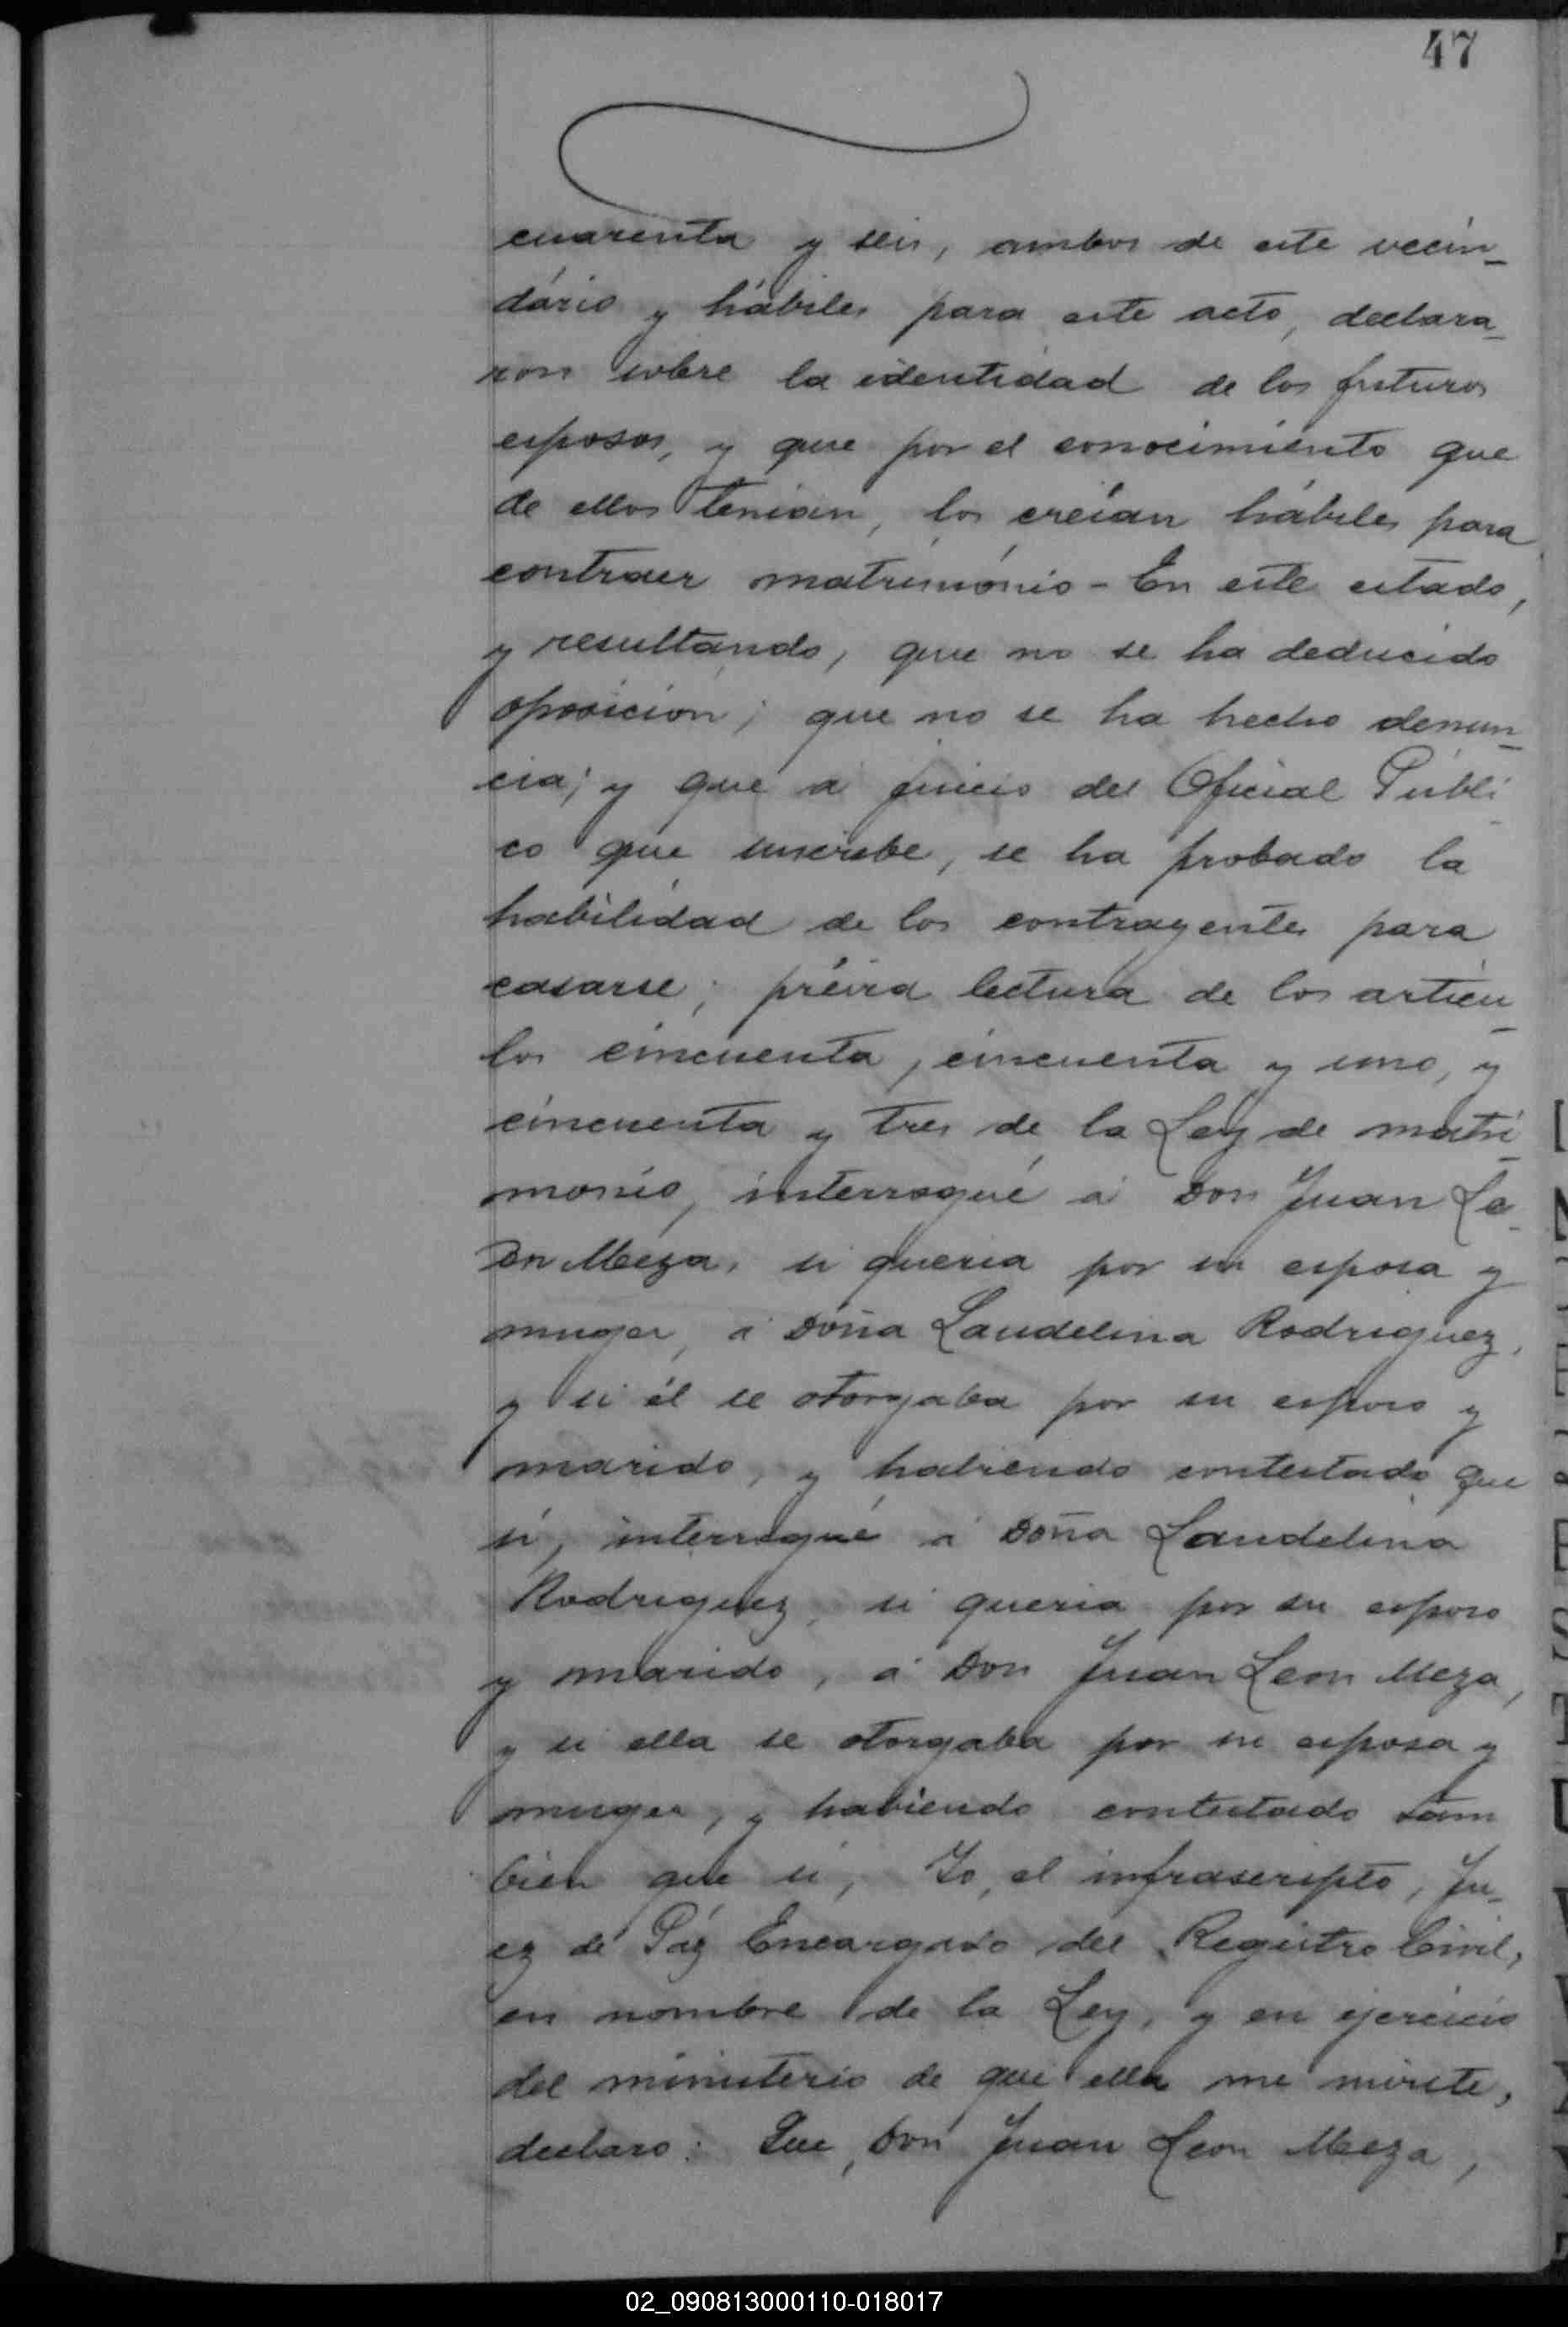 47
cuarenta y seis, ambos de este vecin-
dário y hábiles para este acto, declara-
ron sobre la identidad de los futuros
esposos, y que por el conocimiento que
de ellos tenian, los creían hábiles para
contraer matrimónio - En este estado,
y resultando, que no se ha deducido
oposicion; que no se ha hecho denun-
cia; y que á juicio del Oficial Públi-
co que suscribe, se ha probado la
habilidad de los contrayentes para
casarse; prévia lectura de los artícu-
los cincuenta, cincuenta y uno, y
cincuenta y tres de la Ley de matri-
monio, interrogué á Don Juan Le-
on Meza, si queria por su esposa y
muger, á Doña Laudelina Rodriguez,
y si él se otorgaba por su esposo y
marido, y habiendo contestado que
sí, interrogué á Doña Laudelina
Rodriguez, si queria por su esposo
y marido, á Don Juan Leon Meza,
y si ella se otorgaba por su esposa y
muger, y habiendo contestado tam
bien que sí, Yo, el infrascripto, Ju-
ez de Páz Encargado del Registro Civil,
en nombre de la Ley, y en ejercicio
del ministerio de que ella me inviste,
declaro: Que, Don Juan Leon Meza,
02_090813000110-018017